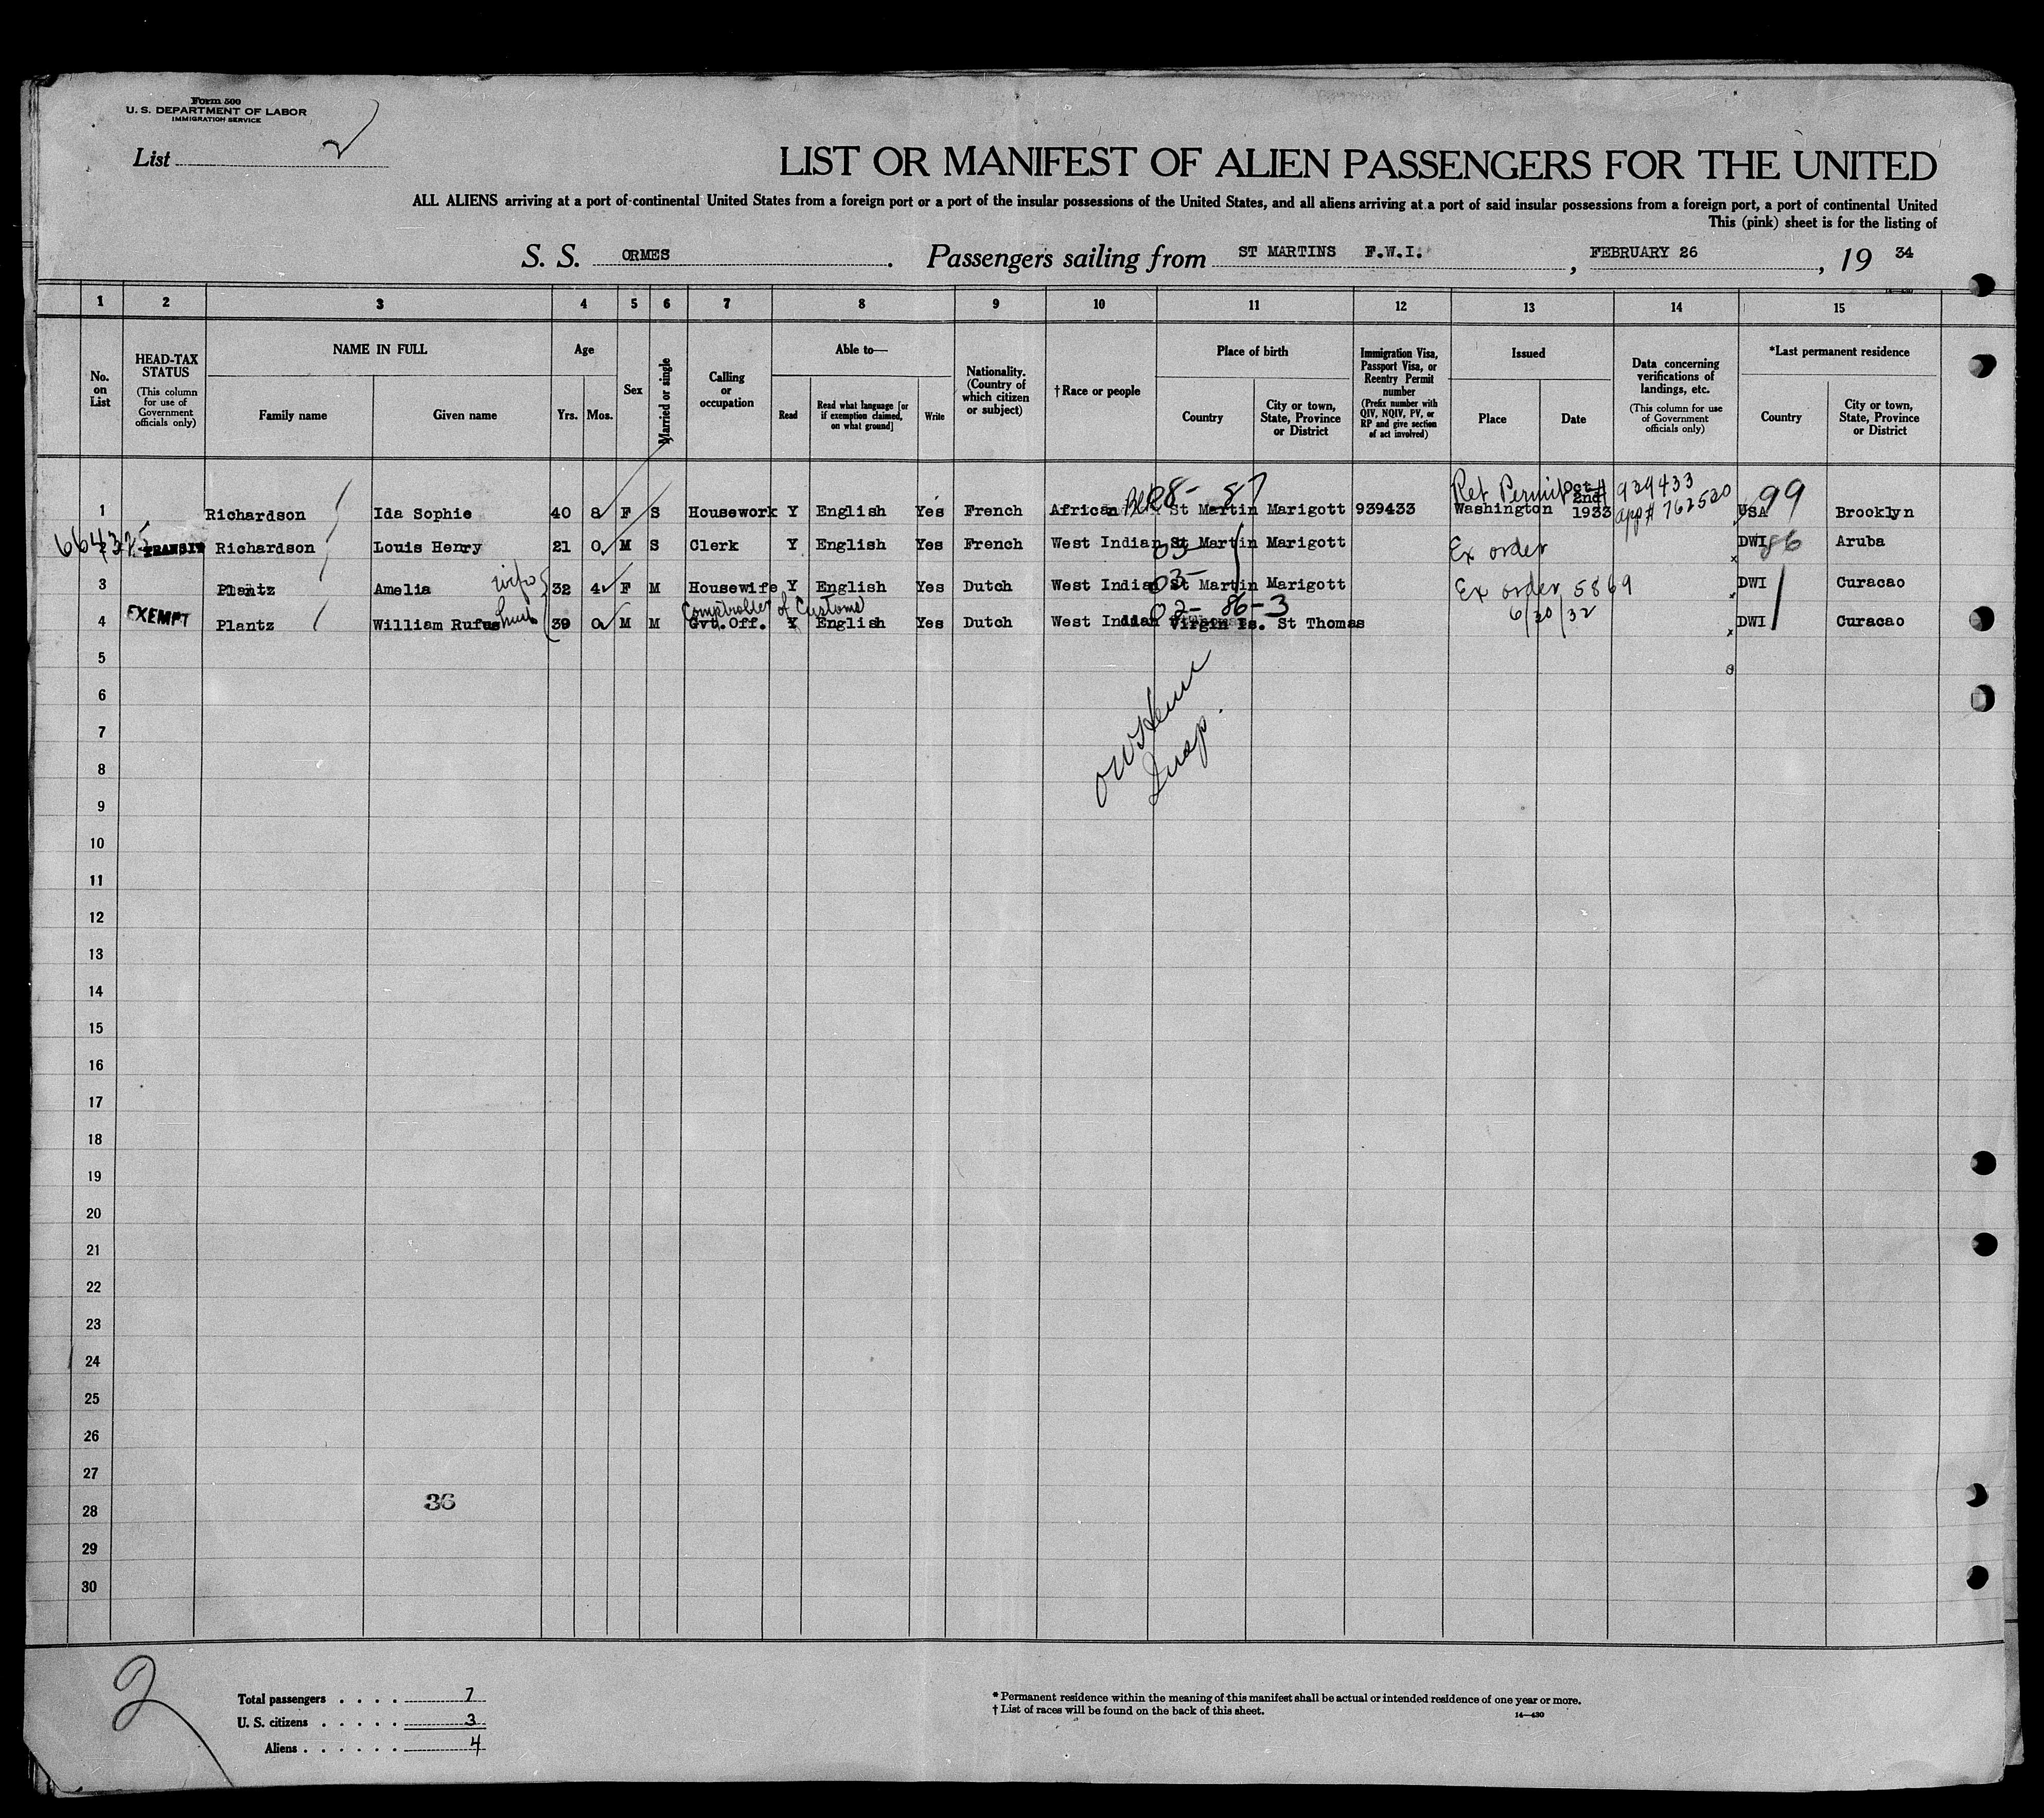 Form 500
U. S. DEPARTMENT OF LABOR
IMMIGRATION SERVICE
List 2
LIST OR MANIFEST OF ALIEN PASSENGERS FOR THE UNITED
ALL ALIENS arriving at a port of continental United States from a foreign port or a port of the insular possessions of the United States, and all aliens arriving at a port of said insular possessions from a foreign port, a port of continental United
This (pink) sheet is for the listing of
S. S. ORMES. Passengers sailing from ST MARTINS F.W.I., FEBRUARY 26, 19 34
14—430
1 2 3 4 5 6 7 8 9 10 11 12 13 14 15
No. on List
HEAD-TAX STATUS
(This column for use of Government officials only)
NAME IN FULL
Family name Given name
Age
Yrs. Mos.
Sex
Married or single
Calling or occupation
Able to—
Read
Read what language [or if exemption claimed, on what ground]
Write
Nationality. (Country of which citizen or subject)
† Race or people
Place of birth
Country
City or town, State, Province or District
Immigration Visa, Passport Visa, or Reentry Permit number
(Prefix number with QIV, NQIV, PV, or RP and give section of act involved)
Issued
Place Date
Data concerning verifications of landings, etc.
(This column for use of Government officials only)
*Last permanent residence
Country
City or town, State, Province or District
Ret Permit 929433
08- 87 app # 762520 99
1 Richardson Ida Sophie 40 8 F S Housework Y English Yes French African Blk St Martin Marigott 939433 Washington Oct 2nd 1933 USA Brooklyn
2 TRANSIT Richardson Louis Henry 21 0 M S Clerk Y English Yes French West Indian St Martin Marigott Ex order DWI 86 Aruba
03-
3 Plantz Amelia wife 32 4 F M Housewife Y English Yes Dutch West Indian St Martin Marigott Ex order 5869 DWI Curacao
03-
Comptroller of Customs 02- 86-3 6/30/32
4 EXEMPT Plantz William Rufus husb 39 0 M M Gvt.Off. Y English Yes Dutch West Indian Virgin Is. St Thomas DWI Curacao
5
6
7
8
Insp.
9
10
11
12
13
14
15
16
17
18
19
20
21
22
23
24
25
26
27
36
28
29
30
2
Total passengers . . . . 7
U. S. citizens . . . . . 3
Aliens . . . . . . 4
* Permanent residence within the meaning of this manifest shall be actual or intended residence of one year or more.
† List of races will be found on the back of this sheet.
14—430